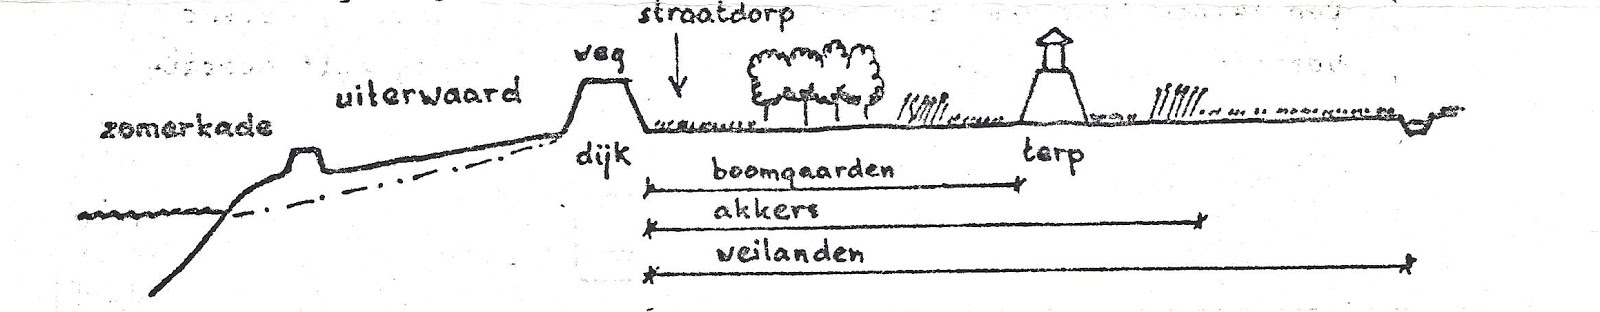 straatdorp
veg
uiterwaard
zomerkade
dijk
terp
boomgaarden
akkers
weilanden